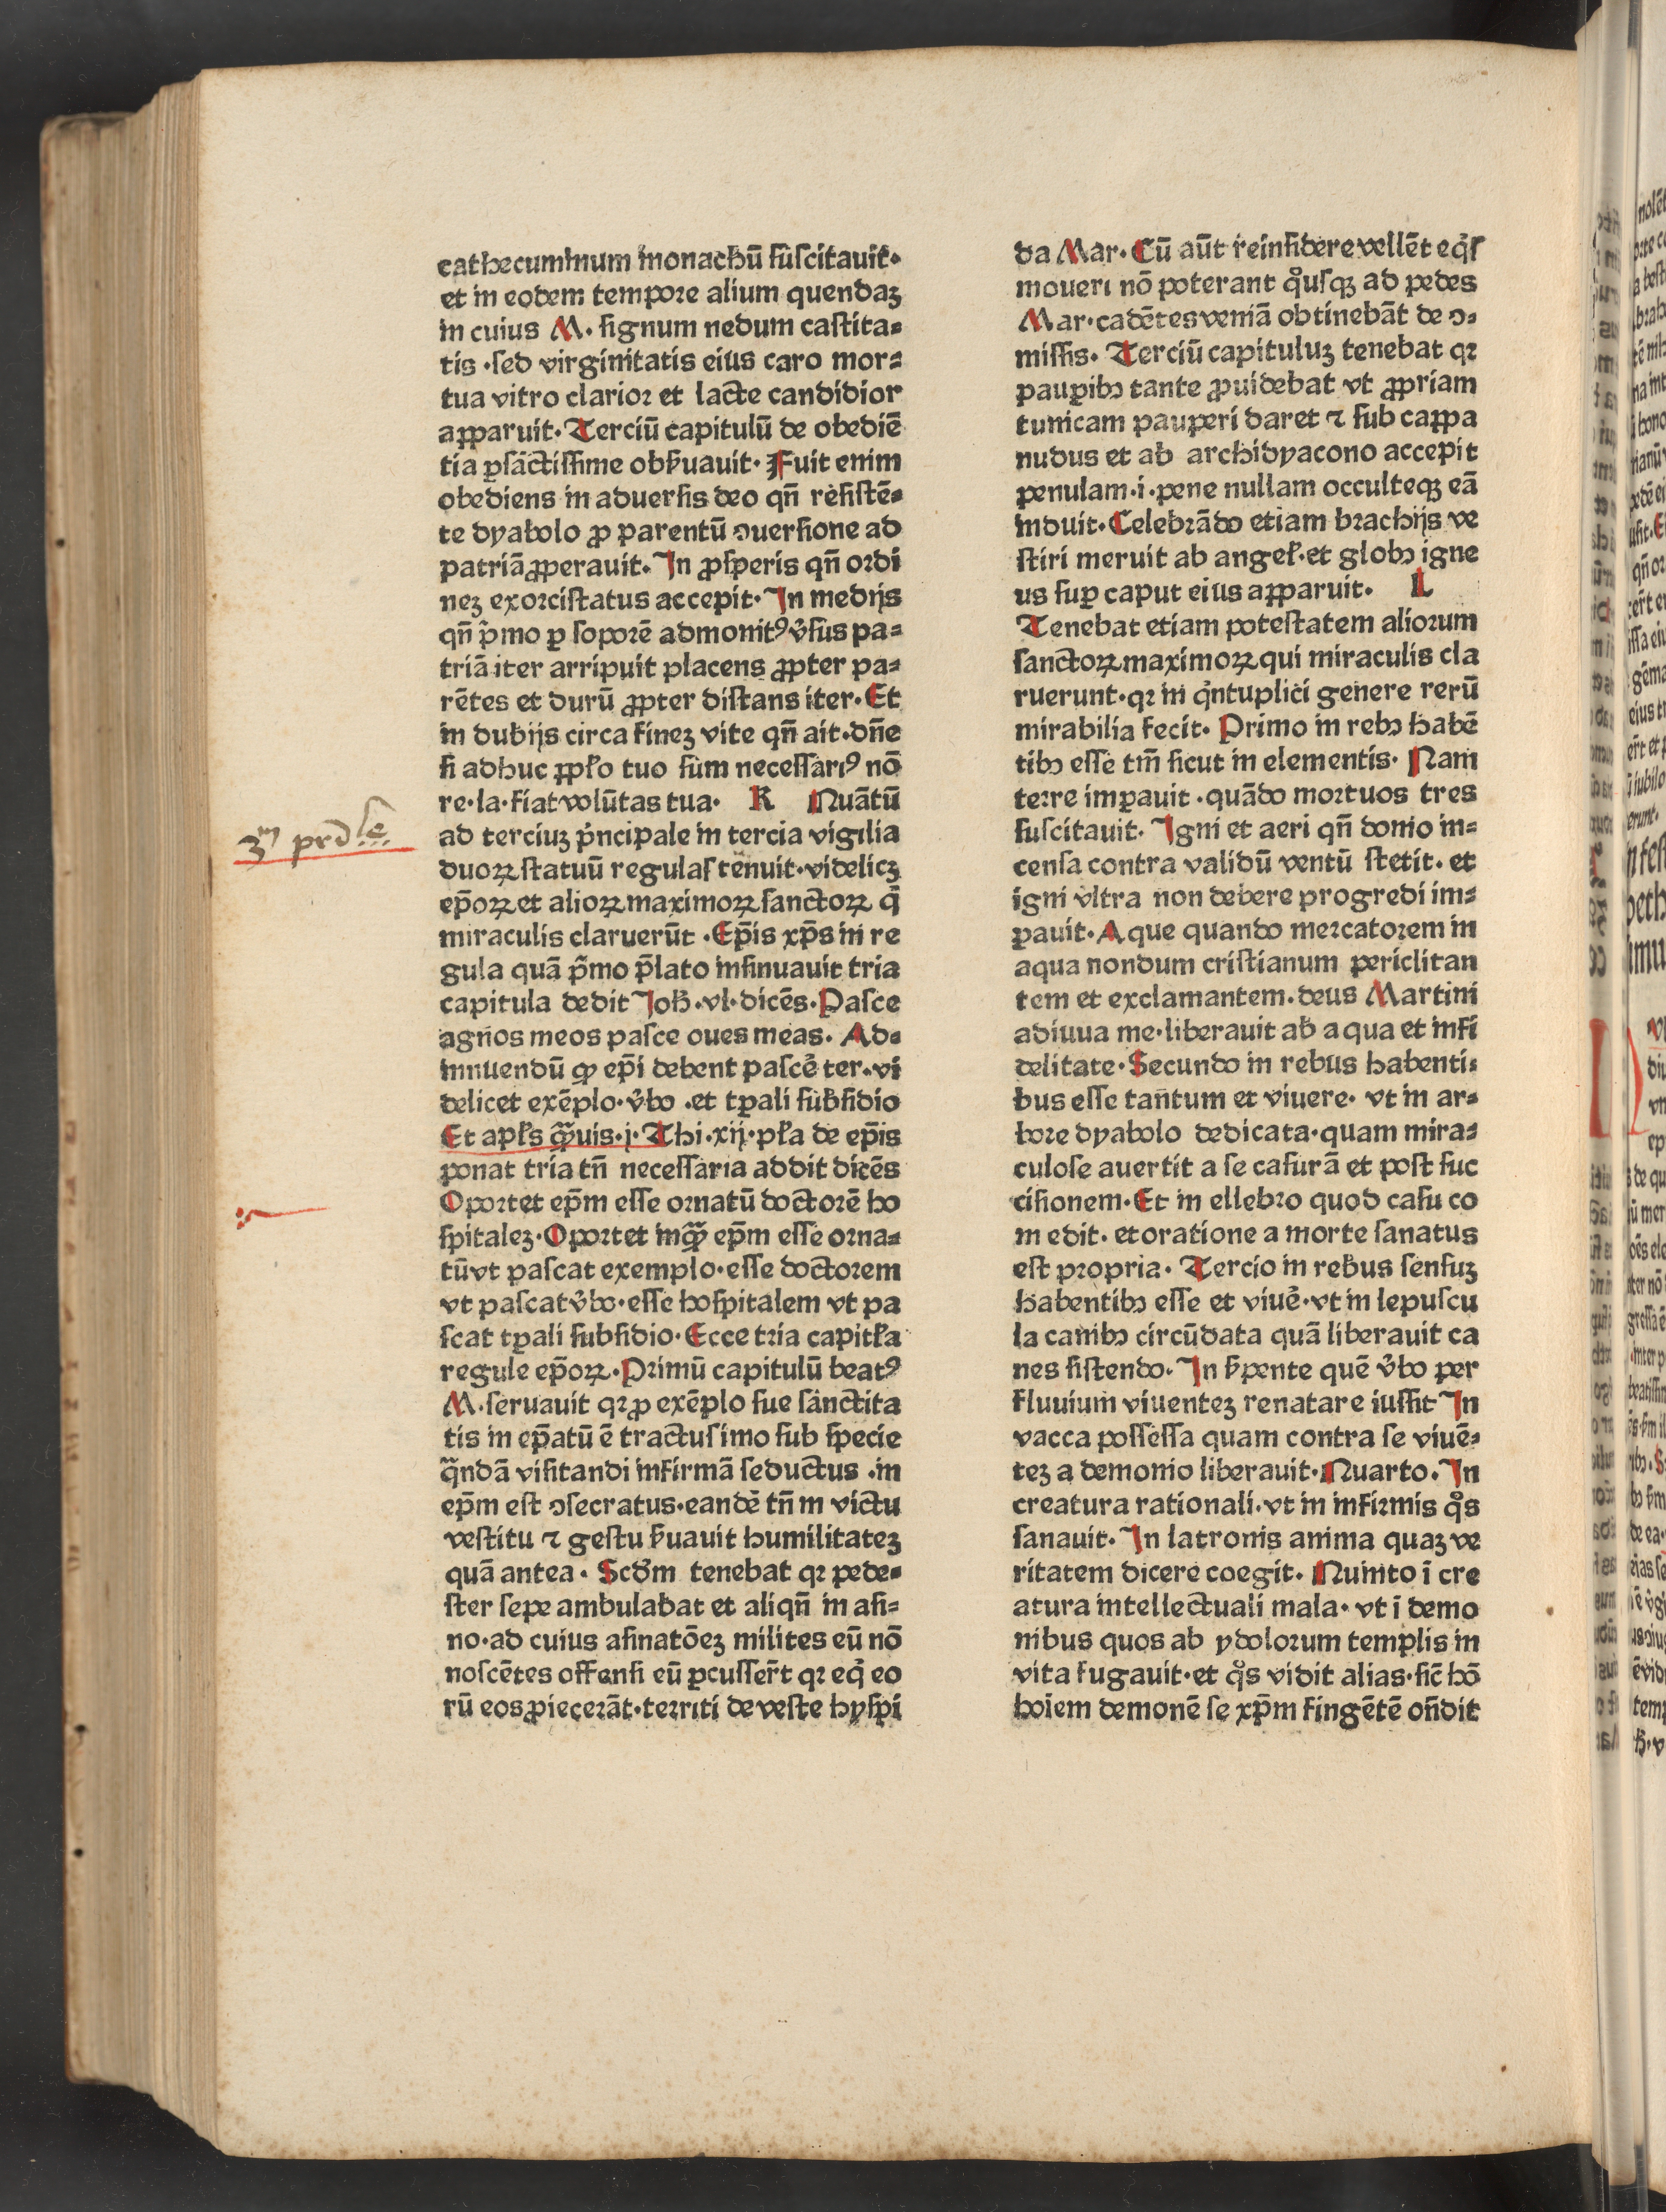 cathecuminum monachū ſuſcitauit·
et in eodem tempore alium quendaꝫ
in cuius M· ſignum nedum caſtita⸗
tis ·ſed virginitatis eius caro mor⸗
tua vitro clarior et lacte candidior
apparuit· Terciū capitulū de obediē
tia ꝑſāctiſſime obẜuauit· Fuit enim
obediens in aduerſis deo qn̄ reſiſtē⸗
te dyabolo ꝓ parentū ꝯuerſione ad
patriā ꝓperauit· In ꝓſperis qn̄ ordi
neꝫ exorciſtatus accepit· In medijs
qn̄ p̄mo ꝑ ſoporē admonitꝰ v̓ſus pa⸗
triā iter arripuit placens ꝓpter pa⸗
rētes et durū ꝓpter diſtans iter· Et
in dubijs circa fineꝫ vite qn̄ ait·dn̄e
ſi adhuc ppl̓o tuo ſum neceſſariꝰ nō
re·la·fiat volūtas tua· K Quātū
ad terciuꝫ pͥncipale in tercia vigilia
duoꝝ ſtatuū regulaſ tenuit·videlicꝫ
ep̄oꝝ et alioꝝ maximoꝝ ſanctoꝝ q̄
miraculis claruerūt ·Ep̄is xp̄s in re
gula quā p̄mo p̄lato inſinuauit tria
capitula dedit Joh̄·vl·dicēs·Paſce
agnos meos paſce oues meas· Ad⸗
innuendū ꝙ ep̄i debent paſcē ter·vi
delicet exēplo·v̓bo ·et tꝑali ſubſidio
Et apl̓s q̄uis·j·Thi·xij·pl̓a de ep̄is
ponat tria tn̄ neceſſaria addit dicēs
Oportet ep̄m eſſe ornatū doctorē ho
ſpitaleꝫ·Oportet inq̄ ep̄m eſſe orna⸗
tū vt paſcat exemplo·eſſe doctorem
vt paſcat v̓bo·eſſe hoſpitalem vt pa
ſcat tꝑali ſubſidio·Ecce tria capitl̓a
regule ep̄oꝝ·Primū capitulū beatꝰ
M·ſeruauit qꝛ ꝓ exēplo ſue ſanctita
tis in ep̄atū ē tractuſ imo ſub ſpecie
q̄ndā viſitandi infirmā ſeductus ·in
ep̄m eſt ꝯſecratus·eandē tn̄ in victu
veſtitu ⁊ geſtu ẜuauit humilitateꝫ
quā antea· Scd̓m tenebat qꝛ pede⸗
ſter ſepe ambulabat et aliqn̄ in aſi⸗
no·ad cuius aſinatōeꝫ milites eū nō
noſcētes offenſi eū ꝑcuſſer̄t qꝛ eq̓ eo
rū eos ꝓiecerāt·territi de veſte hyſpi
3m prᵈle
da Mar· Cū aūt reinſidere vellēt eq̓ſ
moueri nō poterant qͦuſqꝫ ad pedes
Mar·cadētes veniā obtinebāt de ꝯ⸗
miſſis· Terciū capituluꝫ tenebat qꝛ
pauꝑibꝯ tante ꝓuidebat vt ꝓpriam
tunicam pauperi daret ⁊ ſub cappa
nudus et ab archidyacono accepit
penulam·i·pene nullam occulteqꝫ eā
induit· Celebrādo etiam brachijs ve
ſtiri meruit ab angel̓·et globꝯ igne
us ſuꝑ caput eius apparuit· L
Tenebat etiam poteſtatem aliorum
ſanctoꝝ maximoꝝ qui miraculis cla
ruerunt·qꝛ in qͥntuplici genere rerū
mirabilia fecit· Primo in rebꝯ habē
tibꝯ eſſe tm̄ ſicut in elementis· Nam
terre imꝑauit ·quādo mortuos tres
ſuſcitauit· Igni et aeri qn̄ domo in⸗
cenſa contra validū ventū ſtetit· et
igni vltra non debere progredi im⸗
ꝑauit· Aque quando mercatorem in
aqua nondum criſtianum periclitan
tem et exclamantem·deus Martini
adiuua me·liberauit ab aqua et infi
delitate· Secundo in rebus habenti⸗
bus eſſe tantum et viuere· vt in ar⸗
bore dyabolo dedicata·quam mira⸗
culoſe auertit a ſe caſurā et poſt ſuc
ciſionem· Et in ellebro quod caſu co
medit· et oratione a morte ſanatus
eſt propria· Tercio in rebus ſenſuꝫ
habentibꝯ eſſe et viuē·vt in lepuſcu
la canibꝯ circūdata quā liberauit ca
nes ſiſtendo· In ẜpente quē v̓bo per
fluuium viuenteꝫ renatare iuſſit In
vacca poſſeſſa quam contra ſe viuē⸗
teꝫ a demonio liberauit·Quarto·In
creatura rationali·vt in infirmis qͦs
ſanauit· In latronis anima quaꝫ ve
ritatem dicere coegit· Quinto ī cre
atura intellectuali mala· vt ī demo
nibus quos ab ydolorum templis in
vita fugauit·et qͦs vidit alias·ſic̄ hō
hoīem demonē ſe xp̄m fingētē on̄dit